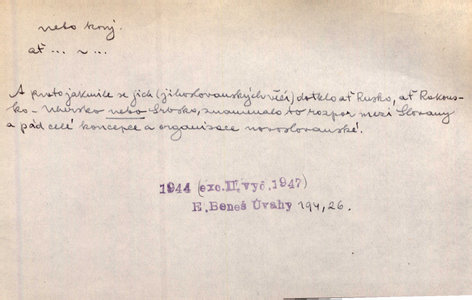 nebo konj.
ať ... ~ ...
A proto jakmile se jich (jihoslovanských věcí) dotklo ať Rusko, ať Rakous-
ko-Uhersko nebo Srbsko, znamenalo to rozpor mezi Slovany
a pád celé koncepce a organisace novoslovanské.
1944 (exc.II.vyd.1947)
E.Beneš Úvahy 194,26.